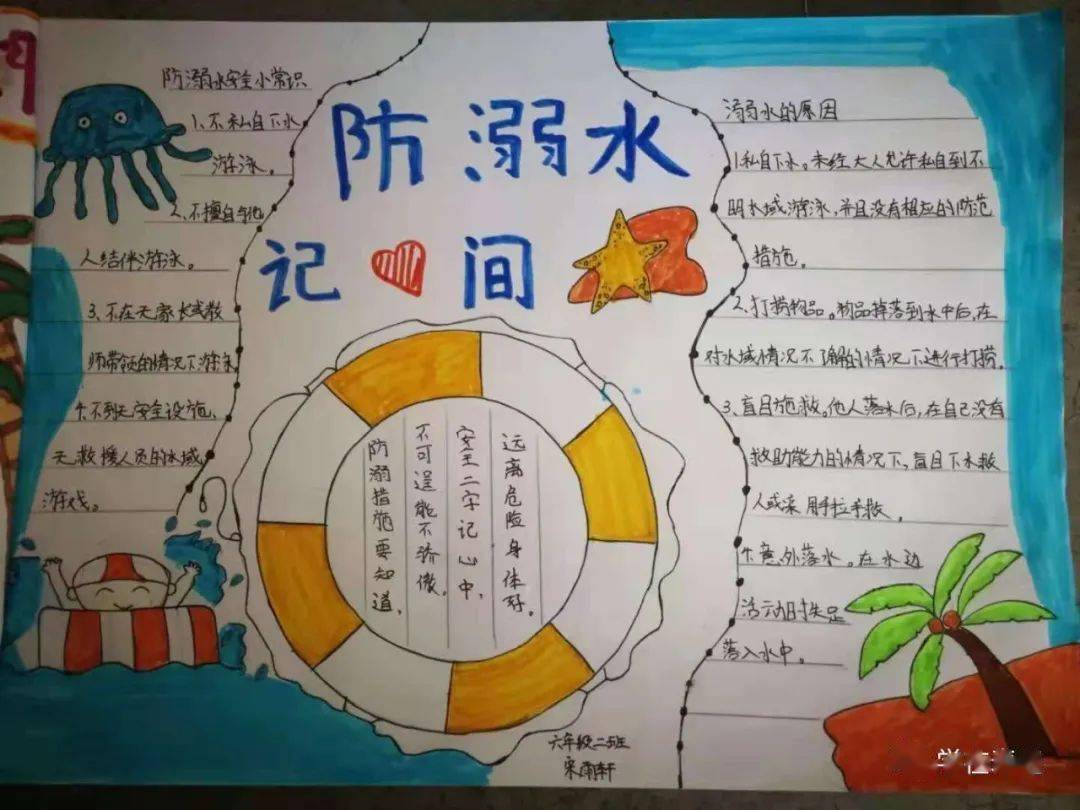 防溺水
记 间
防溺水安全小常识
1、不私自下水
游泳。
2、不擅自与他
人结伴游泳。
3、不在无家长或教
师带领的情况下游泳
4.不到无安全设施、
无救援人员的水域
游戏。
远离危险身体好。
安全二字记心中,
不可逞能不骄傲,
防溺措施要知道,
溺水的原因
1.私自下水。未经大人允许私自到不
明水域游泳,并且没有相应的防范
措施。
2、打捞物品。物品掉落到水中后,在
对水域情况不了解的情况下进行打捞。
3、盲目施救。他人落水后,在自己没有
救助能力的情况下,盲目下水救
人或采用手拉手救。
4.意外落水。在水边
活动时失足
落入水中。
六年级二班
宋雨轩